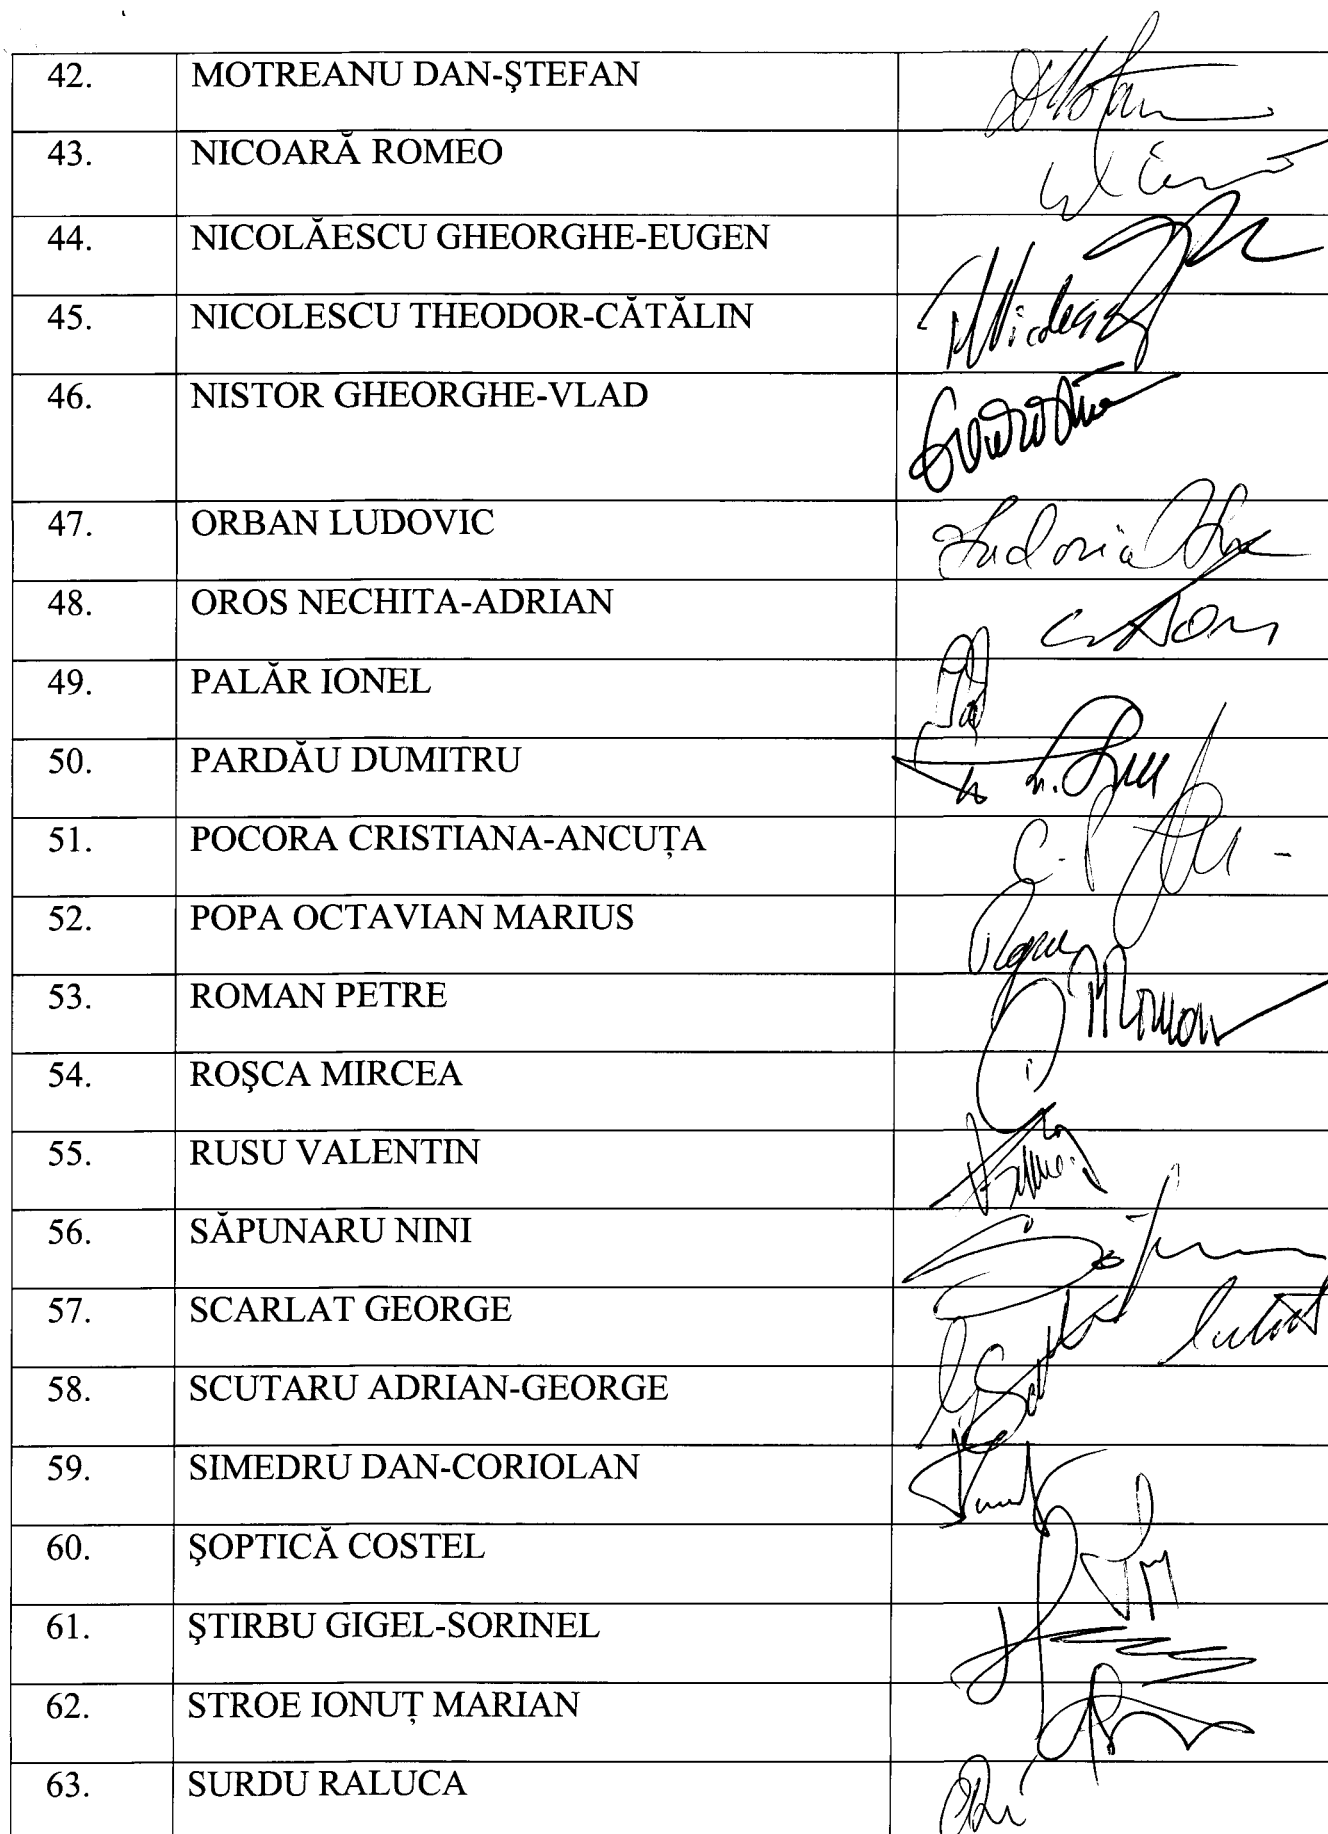 42. MOTREANU DAN-ŞTEFAN
43. NICOARĂ ROMEO
44. NICOLĂESCU GHEORGHE-EUGEN
45. NICOLESCU THEODOR-CĂTĂLIN
46. NISTOR GHEORGHE-VLAD
47. ORBAN LUDOVIC
48. OROS NECHITA-ADRIAN
49. PALĂR IONEL
50. PARDĂU DUMITRU
51. POCORA CRISTIANA-ANCUȚA
52. POPA OCTAVIAN MARIUS
53. ROMAN PETRE
54. ROŞCA MIRCEA
55. RUSU VALENTIN
56. SĂPUNARU NINI
57. SCARLAT GEORGE
58. SCUTARU ADRIAN-GEORGE
59. SIMEDRU DAN-CORIOLAN
60. ŞOPTICĂ COSTEL
61. ŞTIRBU GIGEL-SORINEL
62. STROE IONUȚ MARIAN
63. SURDU RALUCA